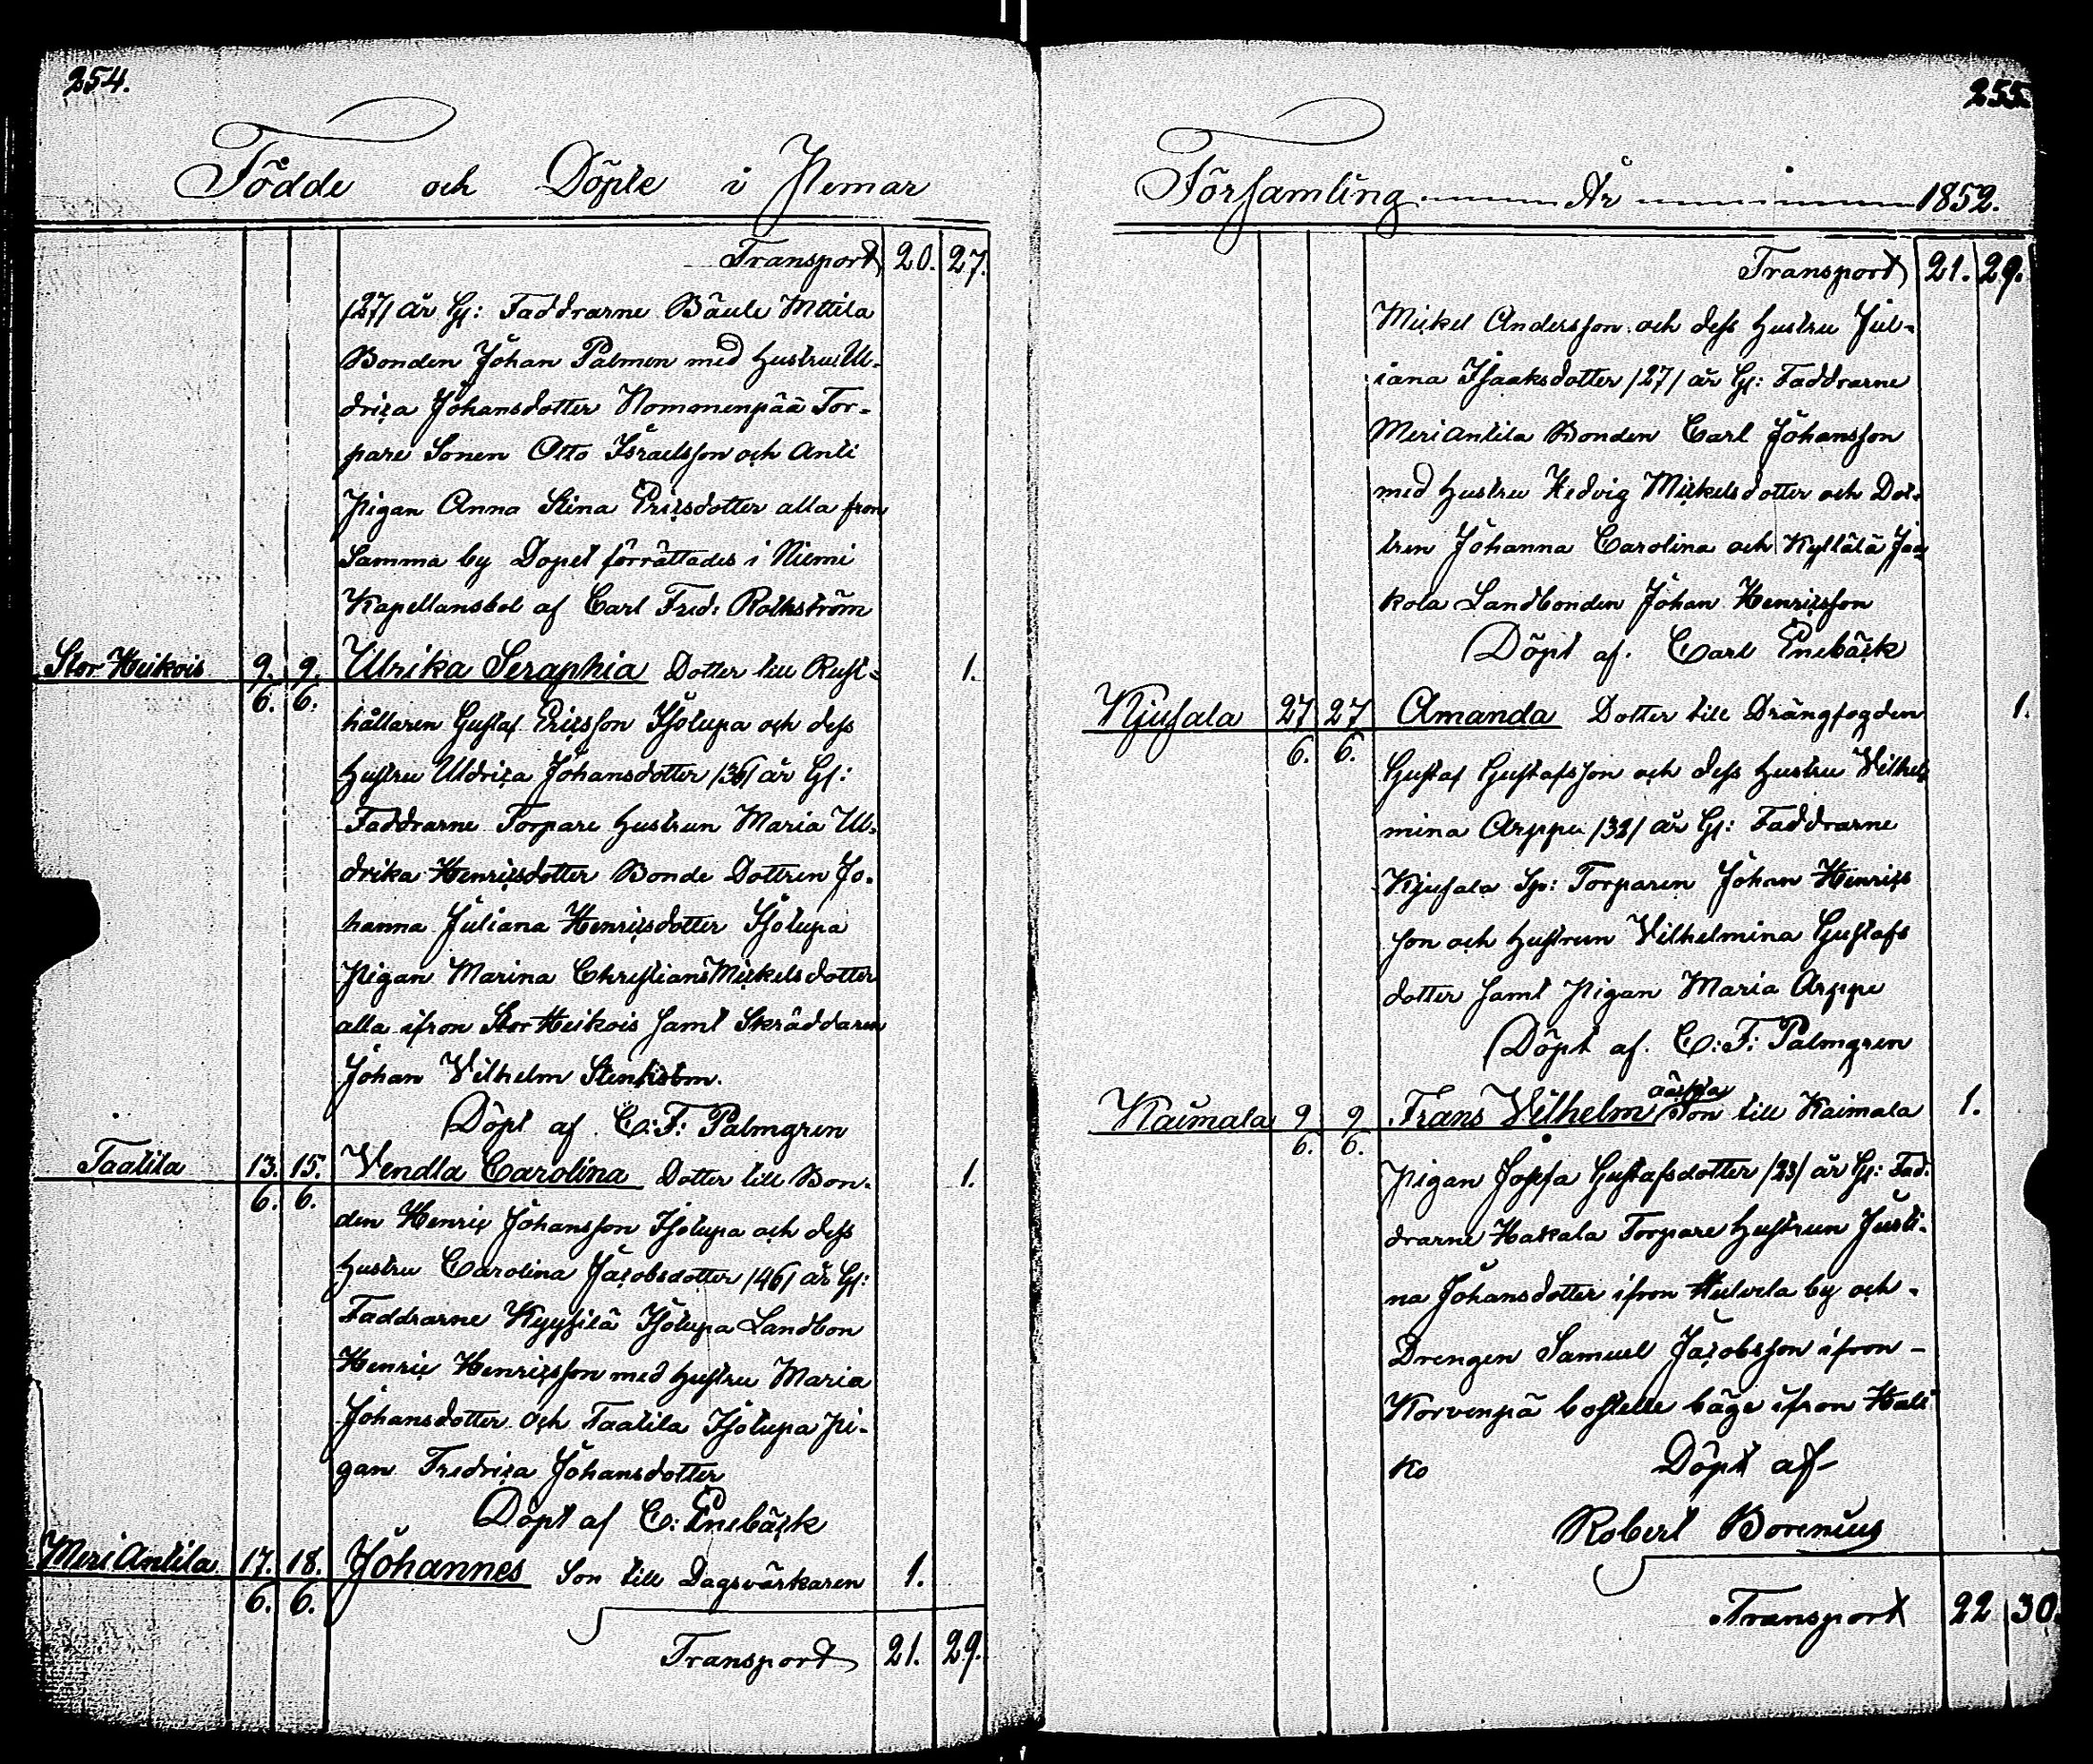 254.
Födde och Döpte i Pemar
Transport 20. 27.
/27/ år G: Faddrarne Bäule Mttila
Bonden Johan Palmen med hustru Ul-
drica Johansdotter Nomonenpää Tor-
pare Sonen Otto Israelsson och Anti
Pigan Anna Stina Ericsdotter alla fron
Samma by Dopet förrättades i Niemi
Kapellansbol af Carl Fred: Rothström
Stor Heikois 9. 9. Ulrika Seraphia Dotter till Rust- 1.
6. 6.
hållaren Gustaf Ericsson Isotupa och dess
hustru Uldrica Johansdotter /36/ år G:
Faddrarne Torpare hustrun Maria Ul-
drika Henricsdotter Bonde Dottren Jo-
hanna Juliana Henricsdotter Isotupa
Pigan Marina Christians Mickelsdotter
alla ifron Stor Heikois samt Skräddaren
Johan Vilhelm Stenholm.
Döpt af C: F: Palmgren
Taatila 13. 15. Vendla Carolina Dotter till Bon- 1.
6. 6.
den Henric Johansson Isotupa och dess
hustru Carolina Jacobsdotter /46/ år G:
Faddrarne Kyysilä Isotupa Landbon
Henric Henricsson med hustru Maria
Johansdotter och Taatila Isotupa Pi-
gan Fredrica Johansdotter
Döpt af C: Enebäck
Meri Antila 17. 18. Johannes Son till Dagsvärkaren 1.
6. 6.
Transport 21. 29.
255.
Församling År 1852.
Transport 21. 29.
Mickel Andersson och dess hustru Jul-
iana Isaaksdotter /27/ år G: Faddrarne
Meriantila Bonden Carl Johansson
med hustru Hedvig Mickelsdotter och Dot-
tren Johanna Carolina och Kyttälä Jaa
kola Landbonden Johan Henricsson
Döpt af. Carl Enebäck
Kjusala 27 27 Amanda Dotter till Drängfogden 1.
6. 6.
Gustaf Gustafsson och dess hustru Vilhel
mina Arppe /32/ år G: Faddrarne
Kjusala Sp: Torparen Johan Henrics
son och hustrun Vilhelmina Gustafs
dotter samt Pigan Maria Arppe
Döpt af. C: F: Palmgren
oäkta
Kaimala 9 9 Frans Vilhelm Son till Kaimala 1.
6. 6.
Pigan Josefa Gustafsdotter /23/ år G: Fad-
drarne Hakala Torpare hustrun Justi-
na Johansdotter ifron by och
Drengen Samuel Jacobsson ifron
Korvenpä bostelle bäge ifron Hali
ko Döpt af
Robert Borenius
Transport 22 30.